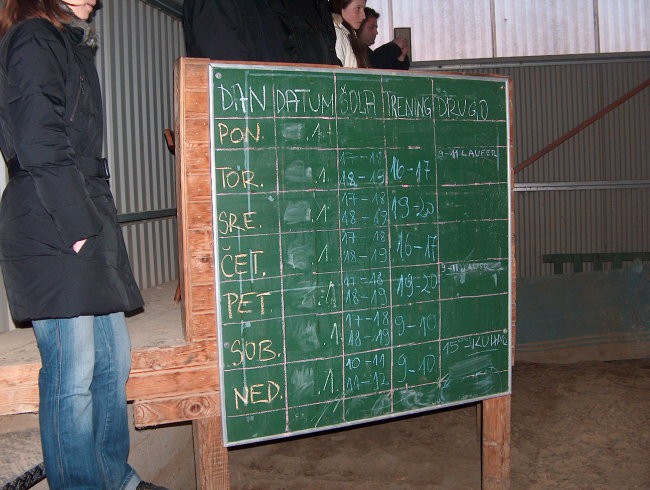 DAN DATUM ŠOLA TRENING DRUGO
PON. .1.
9-11 LAUFER
TOR. .1. 17-18 16-17
18-19
SRE. .1. 17-18 19-20
18-19
ČET. .1. 17 18 16-17
18-19
9-11 LAUFER
PET. .1. 17-18 19-20
18-19
SOB. .1. 17-18 9-10
18-19
NED. .1. 10-11 9-10
11-12